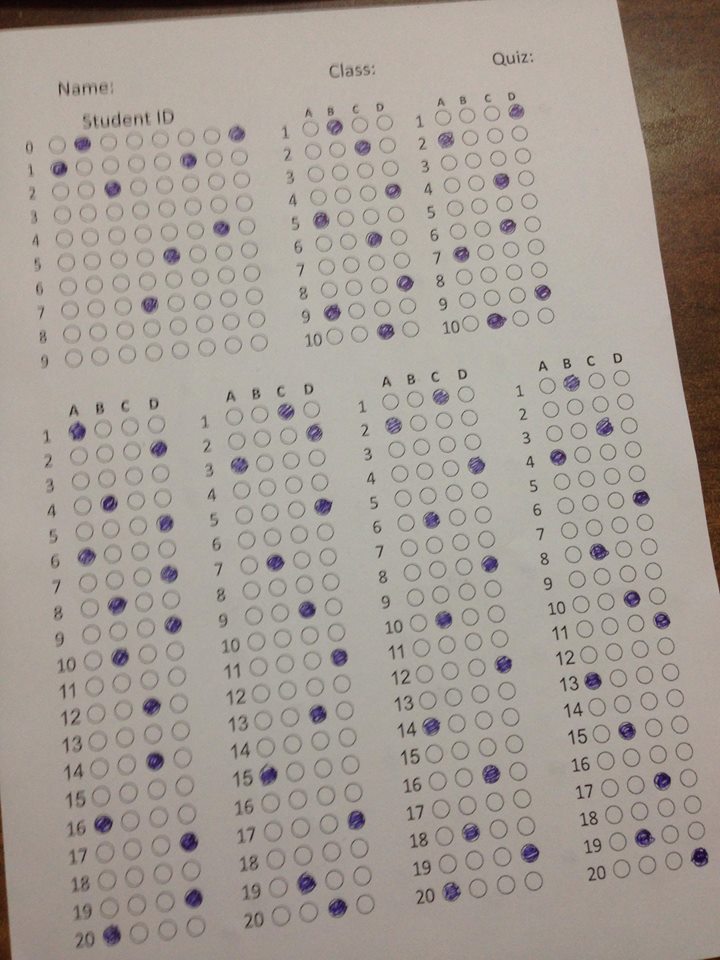 Name: Class: Quiz:
Student ID
0
1
2
3
4
5
6
7
8
9
A B C D
1
2
3
4
5
6
7
8
9
10
A B C D
1
2
3
4
5
6
7
8
9
10
A B C D
1
2
3
4
5
6
7
8
9
10
11
12
13
14
15
16
17
18
19
20
A B C D
1
2
3
4
5
6
7
8
9
10
11
12
13
14
15
16
17
18
19
20
A B C D
1
2
3
4
5
6
7
8
9
10
11
12
13
14
15
16
17
18
19
20
A B C D
1
2
3
4
5
6
7
8
9
10
11
12
13
14
15
16
17
18
19
20